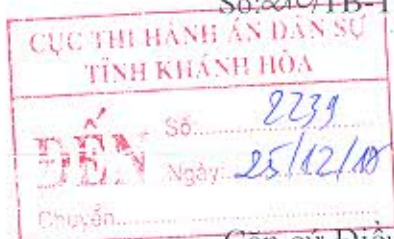 Số: /TB-T
CỤC THI HÀNH ÁN DÂN SỰ
TỈNH KHÁNH HÒA
ĐẾN
Số:.......... 2239
Ngày: 25/12/18
Chuyển..........
Căn cứ Điều